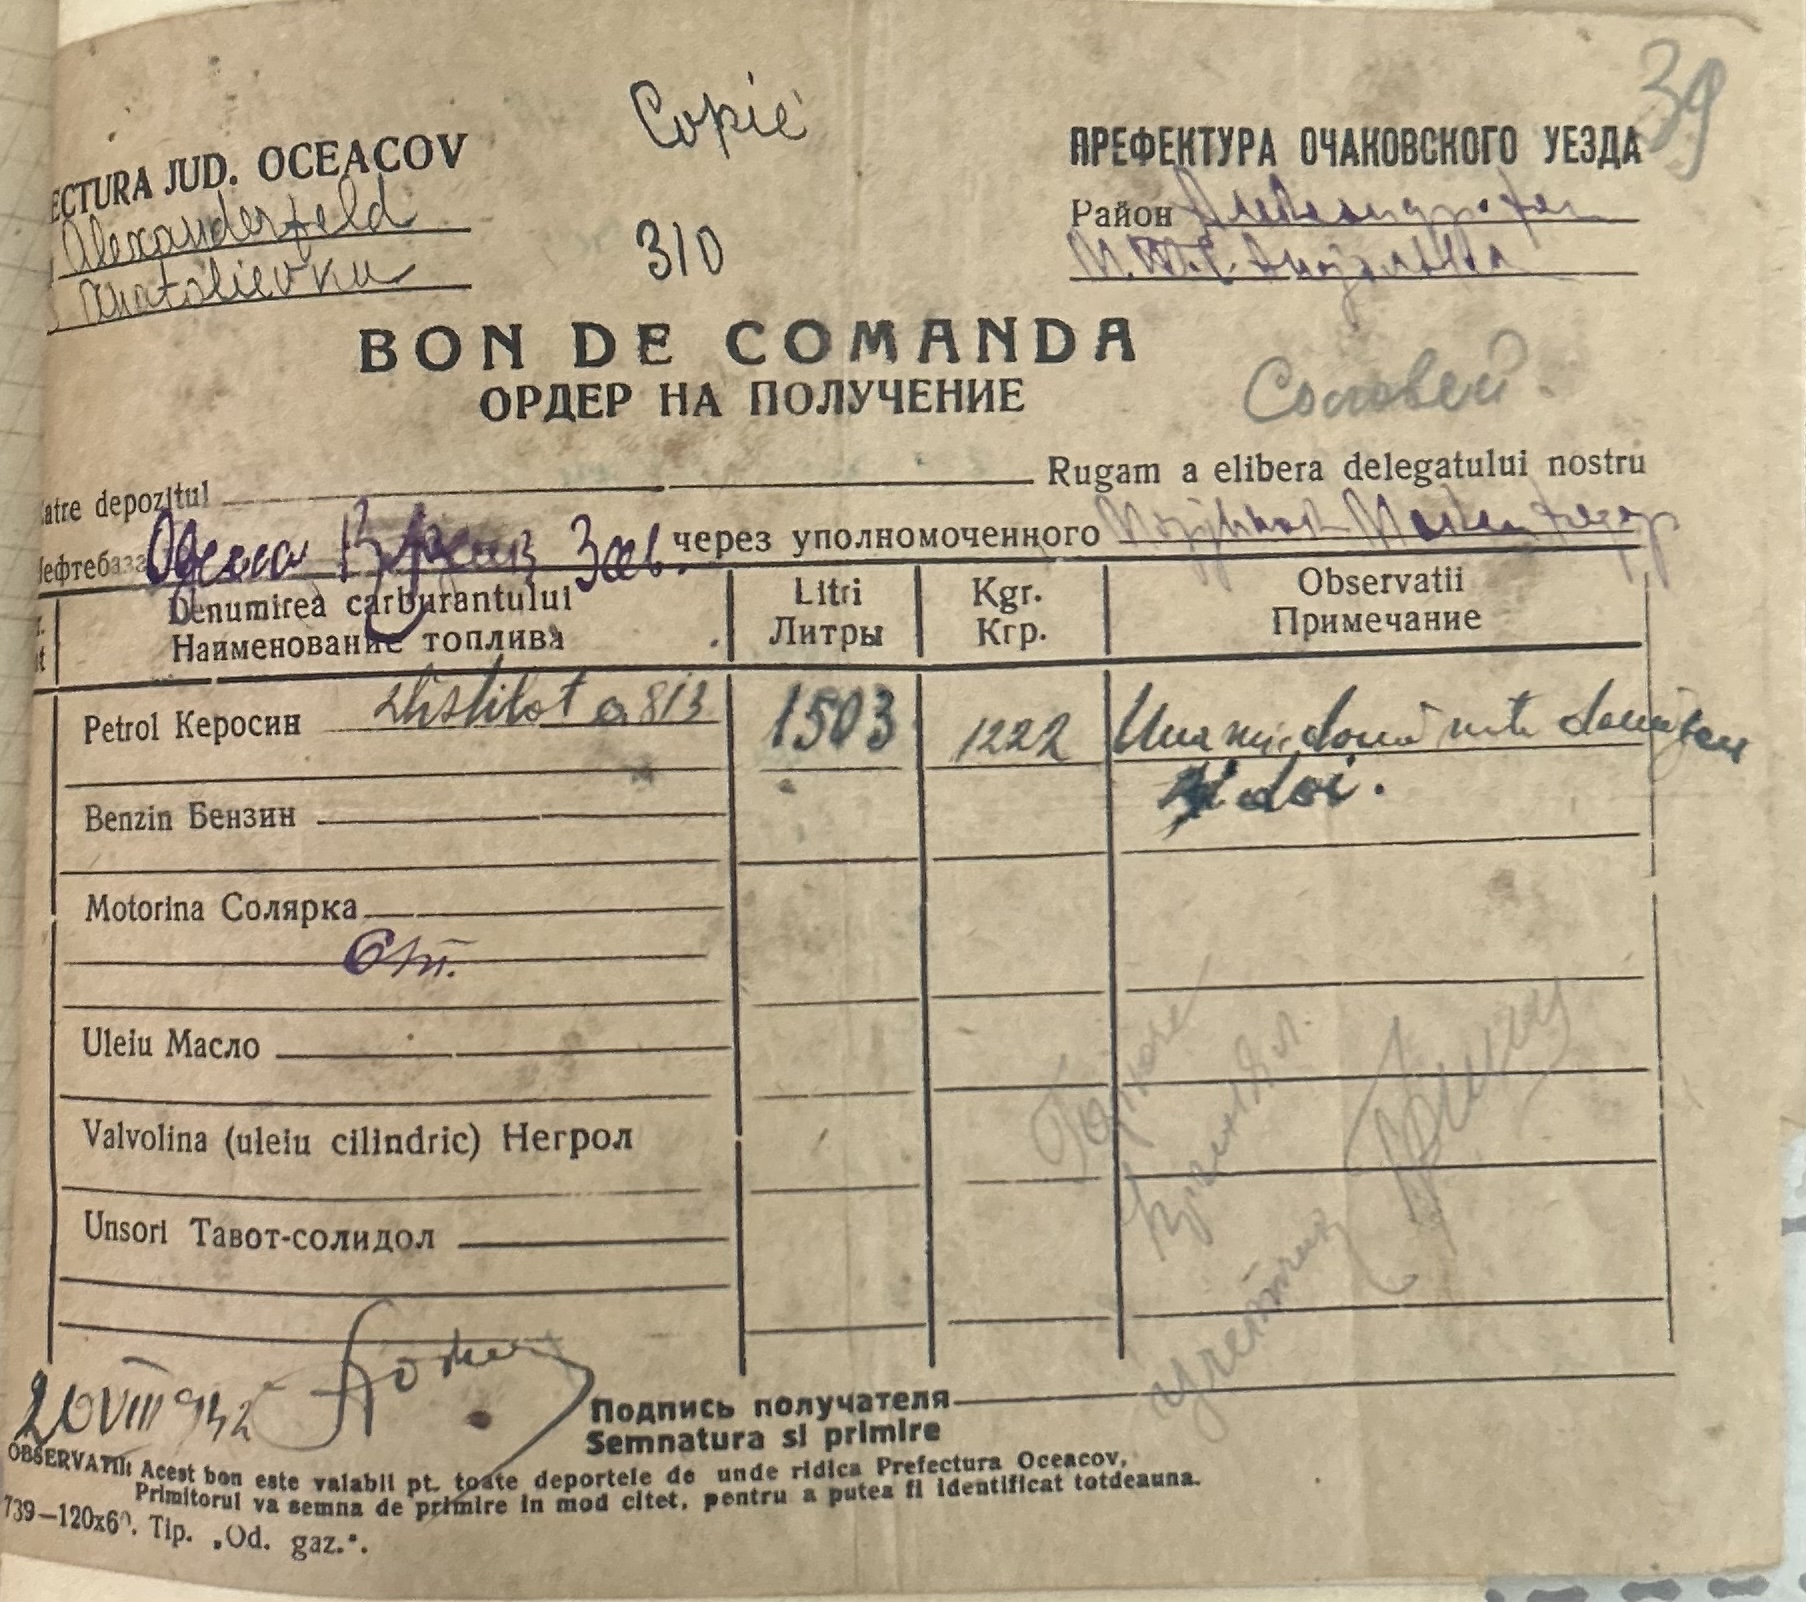 39
Copie
310
ECTURA JUD. OCEACOV
Alexanderfeld
Anatolievka
ПРЕФЕКТУРА ОЧАКОВСКОГО УЕЗДА
Район
М.Т.С.
BON DE COMANDA
ОРДЕР НА ПОЛУЧЕНИЕ
Соловей.
atre depozitul Rugam a elibera delegatului nostru
Нефтебаза Одесса через уполномоченного
Denumirea carburantului Litri Kgr. Observatii
Наименование топлива Литры Кгр. Примечание
Petrol Керосин distilat a 813 1503 1222 Una mie două sute douăzeci
și doi.
Benzin Бензин
Motorina Солярка
Uleiu Масло
Valvolina (uleiu cilindric) Негрол
Unsori Тавот-солидол
20 VIII 942
Подпись получателя
Semnatura si primire
OBSERVATII: Acest bon este valabil pt. toate deportele de unde ridica Prefectura Oceacov,
Primitorul va semna de primire in mod citet, pentru a putea fi identificat totdeauna.
739—120x60. Tip. „Od. gaz.".